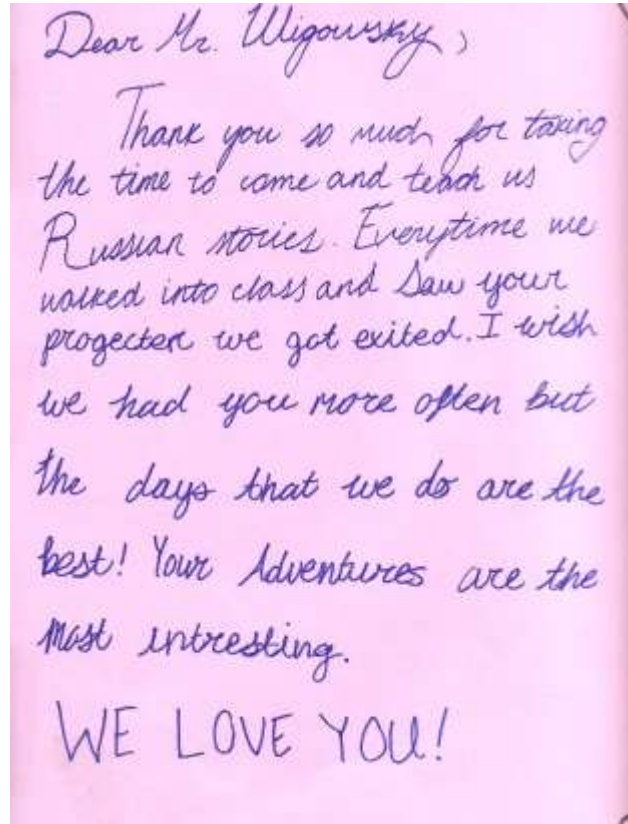 Dear Mr. Wigowsky,
Thank you so much for taking
the time to come and teach us
Russian stories. Everytime we
walked into class and Saw your
progecter we got exited. I wish
we had you more often but
the days that we do are the
best! Your Adventures are the
most intresting.
WE LOVE YOU!